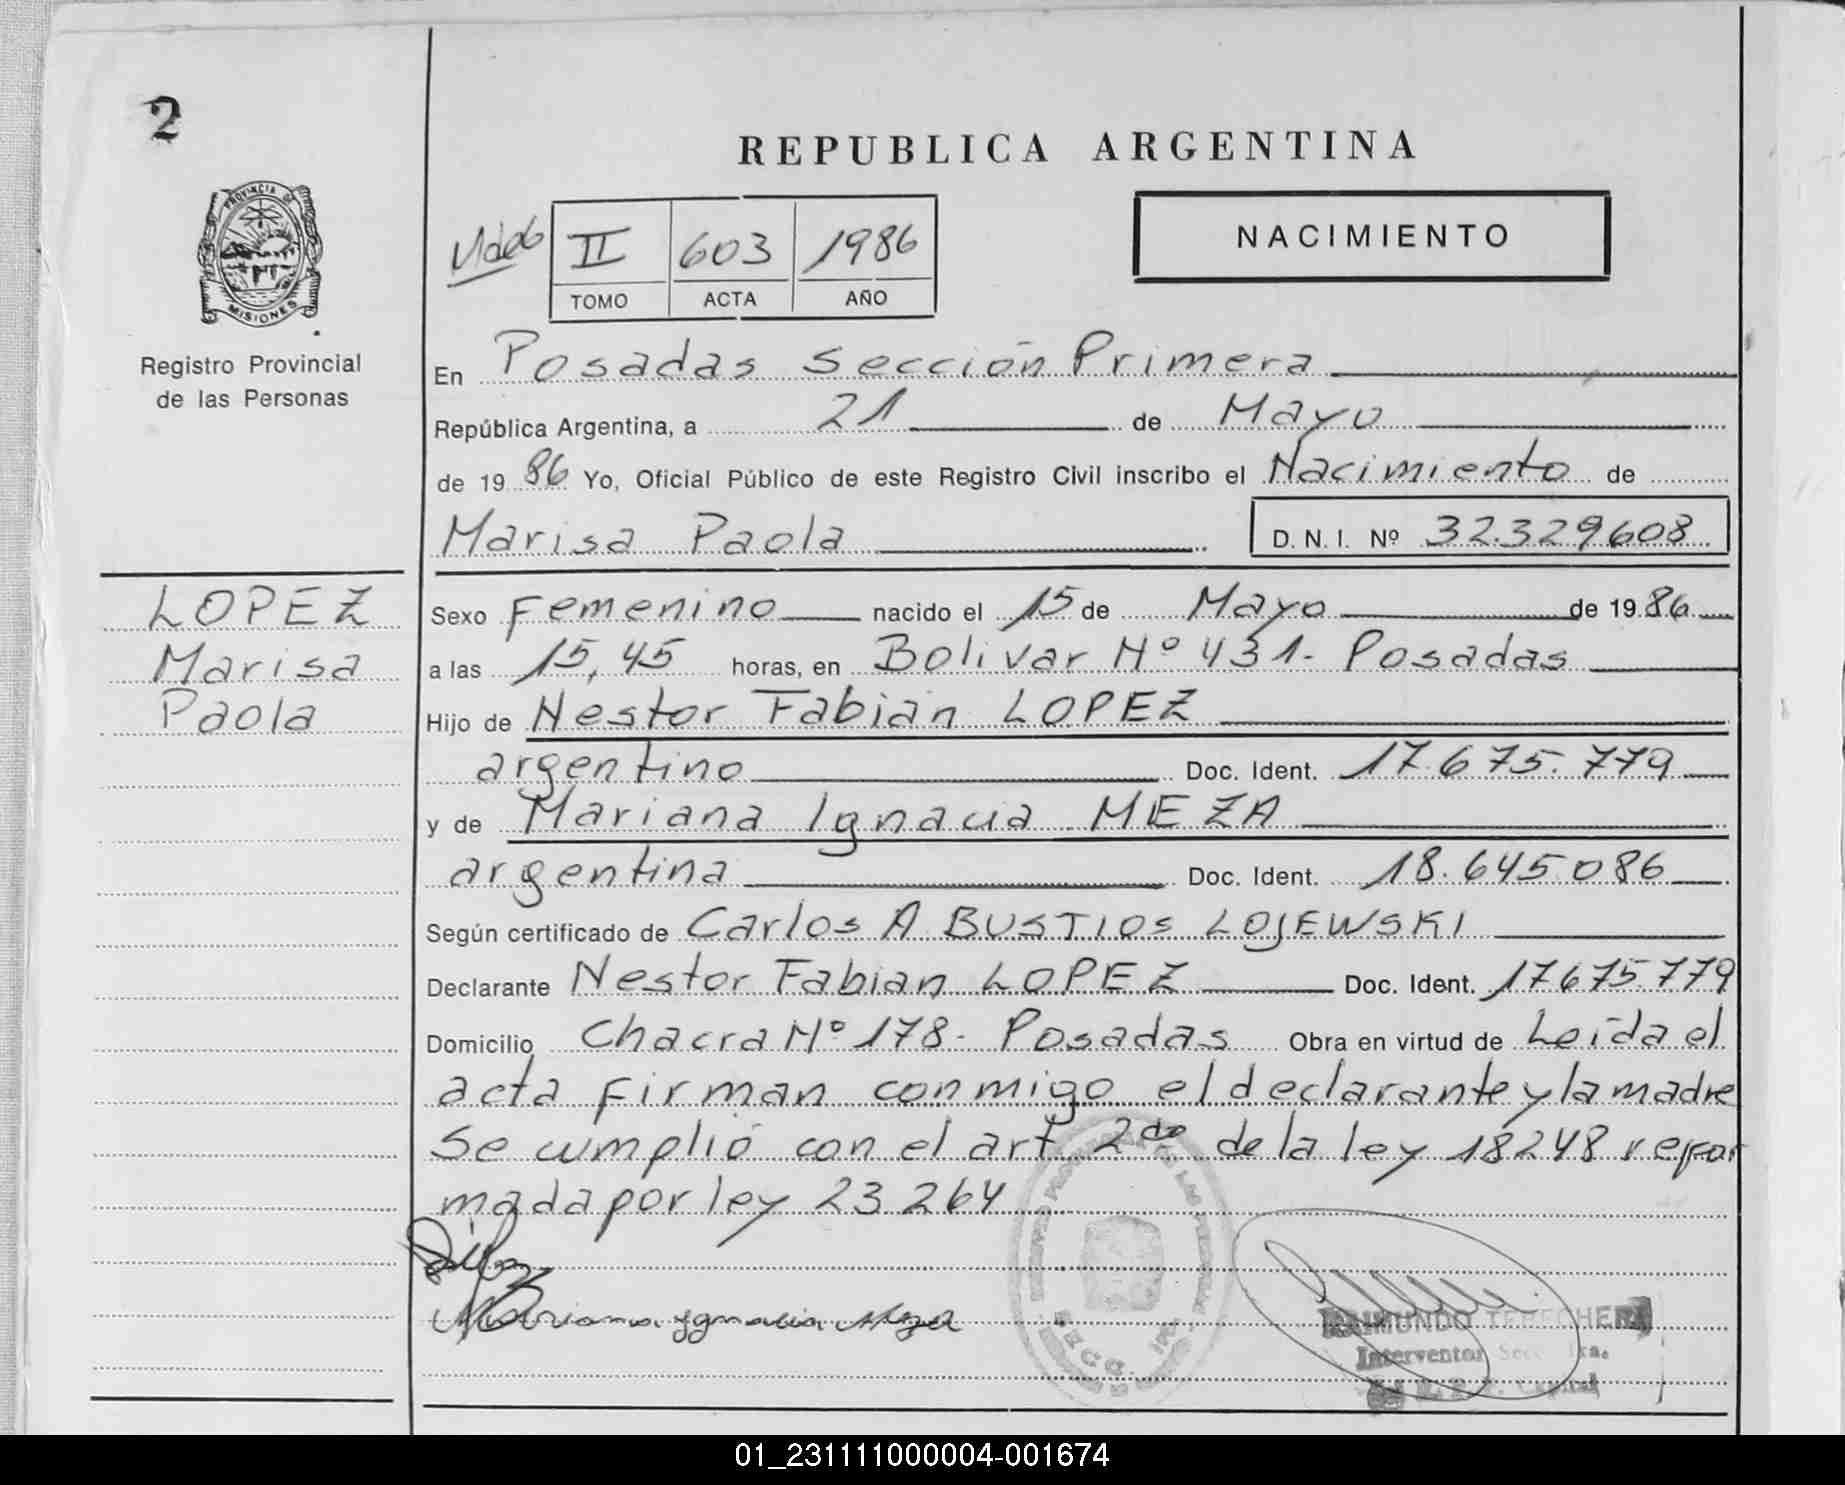 2
REPUBLICA ARGENTINA
PROVINCIA DE
MISIONES
II 603 1986
TOMO ACTA AÑO
NACIMIENTO
Registro Provincial
de las Personas
En Posadas Sección Primera
República Argentina, a 21 de Mayo
de 1986 Yo, Oficial Público de este Registro Civil inscribo el Nacimiento de
Marisa Paola D.N.I. Nº 32.329608
LOPEZ
Marisa
Paola
Sexo Femenino nacido el 15 de Mayo de 1986
a las 15,45 horas, en Bolivar Nº 431- Posadas
Hijo de Nestor Fabián LOPEZ
argentino Doc. Ident. 17.675.779
y de Mariana Ignacia MEZA
argentina Doc. Ident. 18.645.086
Según certificado de Carlos A BUSTIOS LOJEWSKI
Declarante Nestor Fabian LOPEZ Doc. Ident. 17.675.779
Domicilio Chacra Nº 178- Posadas Obra en virtud de Leída el
acta firman conmigo el declarante y la madre
Se cumplió con el art 2do de la ley 18248 refor
mada por ley 23.264
Mariana Ygnacia Meza
RAIMUNDO
Interventor
Capital
01_231111000004-001674